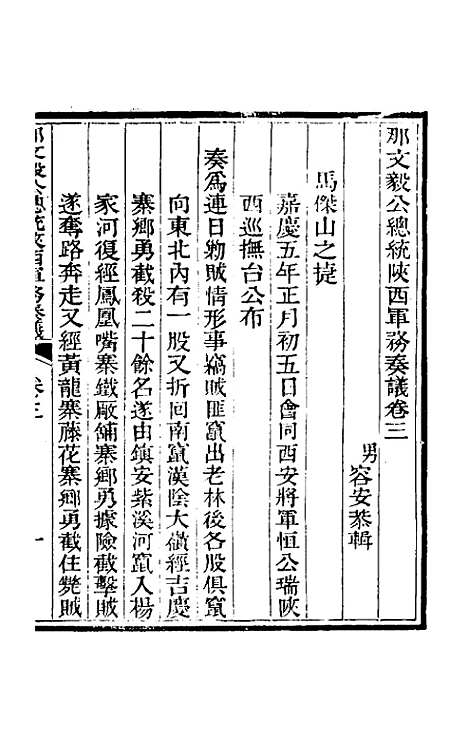 那文毅公總統陝西軍務奏議卷三
男容安恭輯
馬傑山之捷
嘉慶五年正月初五日會同西安將軍恒公瑞陝
西巡撫台公布
奏為連日勦賊情形事竊賊匪竄出老林後各股俱竄
向東北內有一股又折回南竄漢陰大嶺經吉慶
寨鄉勇截殺二十餘名遂由鎮安紫溪河竄入楊
家河復經鳳凰嘴寨鐵厰鋪寨鄉勇據險截擊賊
遂奪路奔走又經黃龍寨藤花寨鄉勇截住斃賊
那文毅公總統陝西軍務奏議
卷三
一